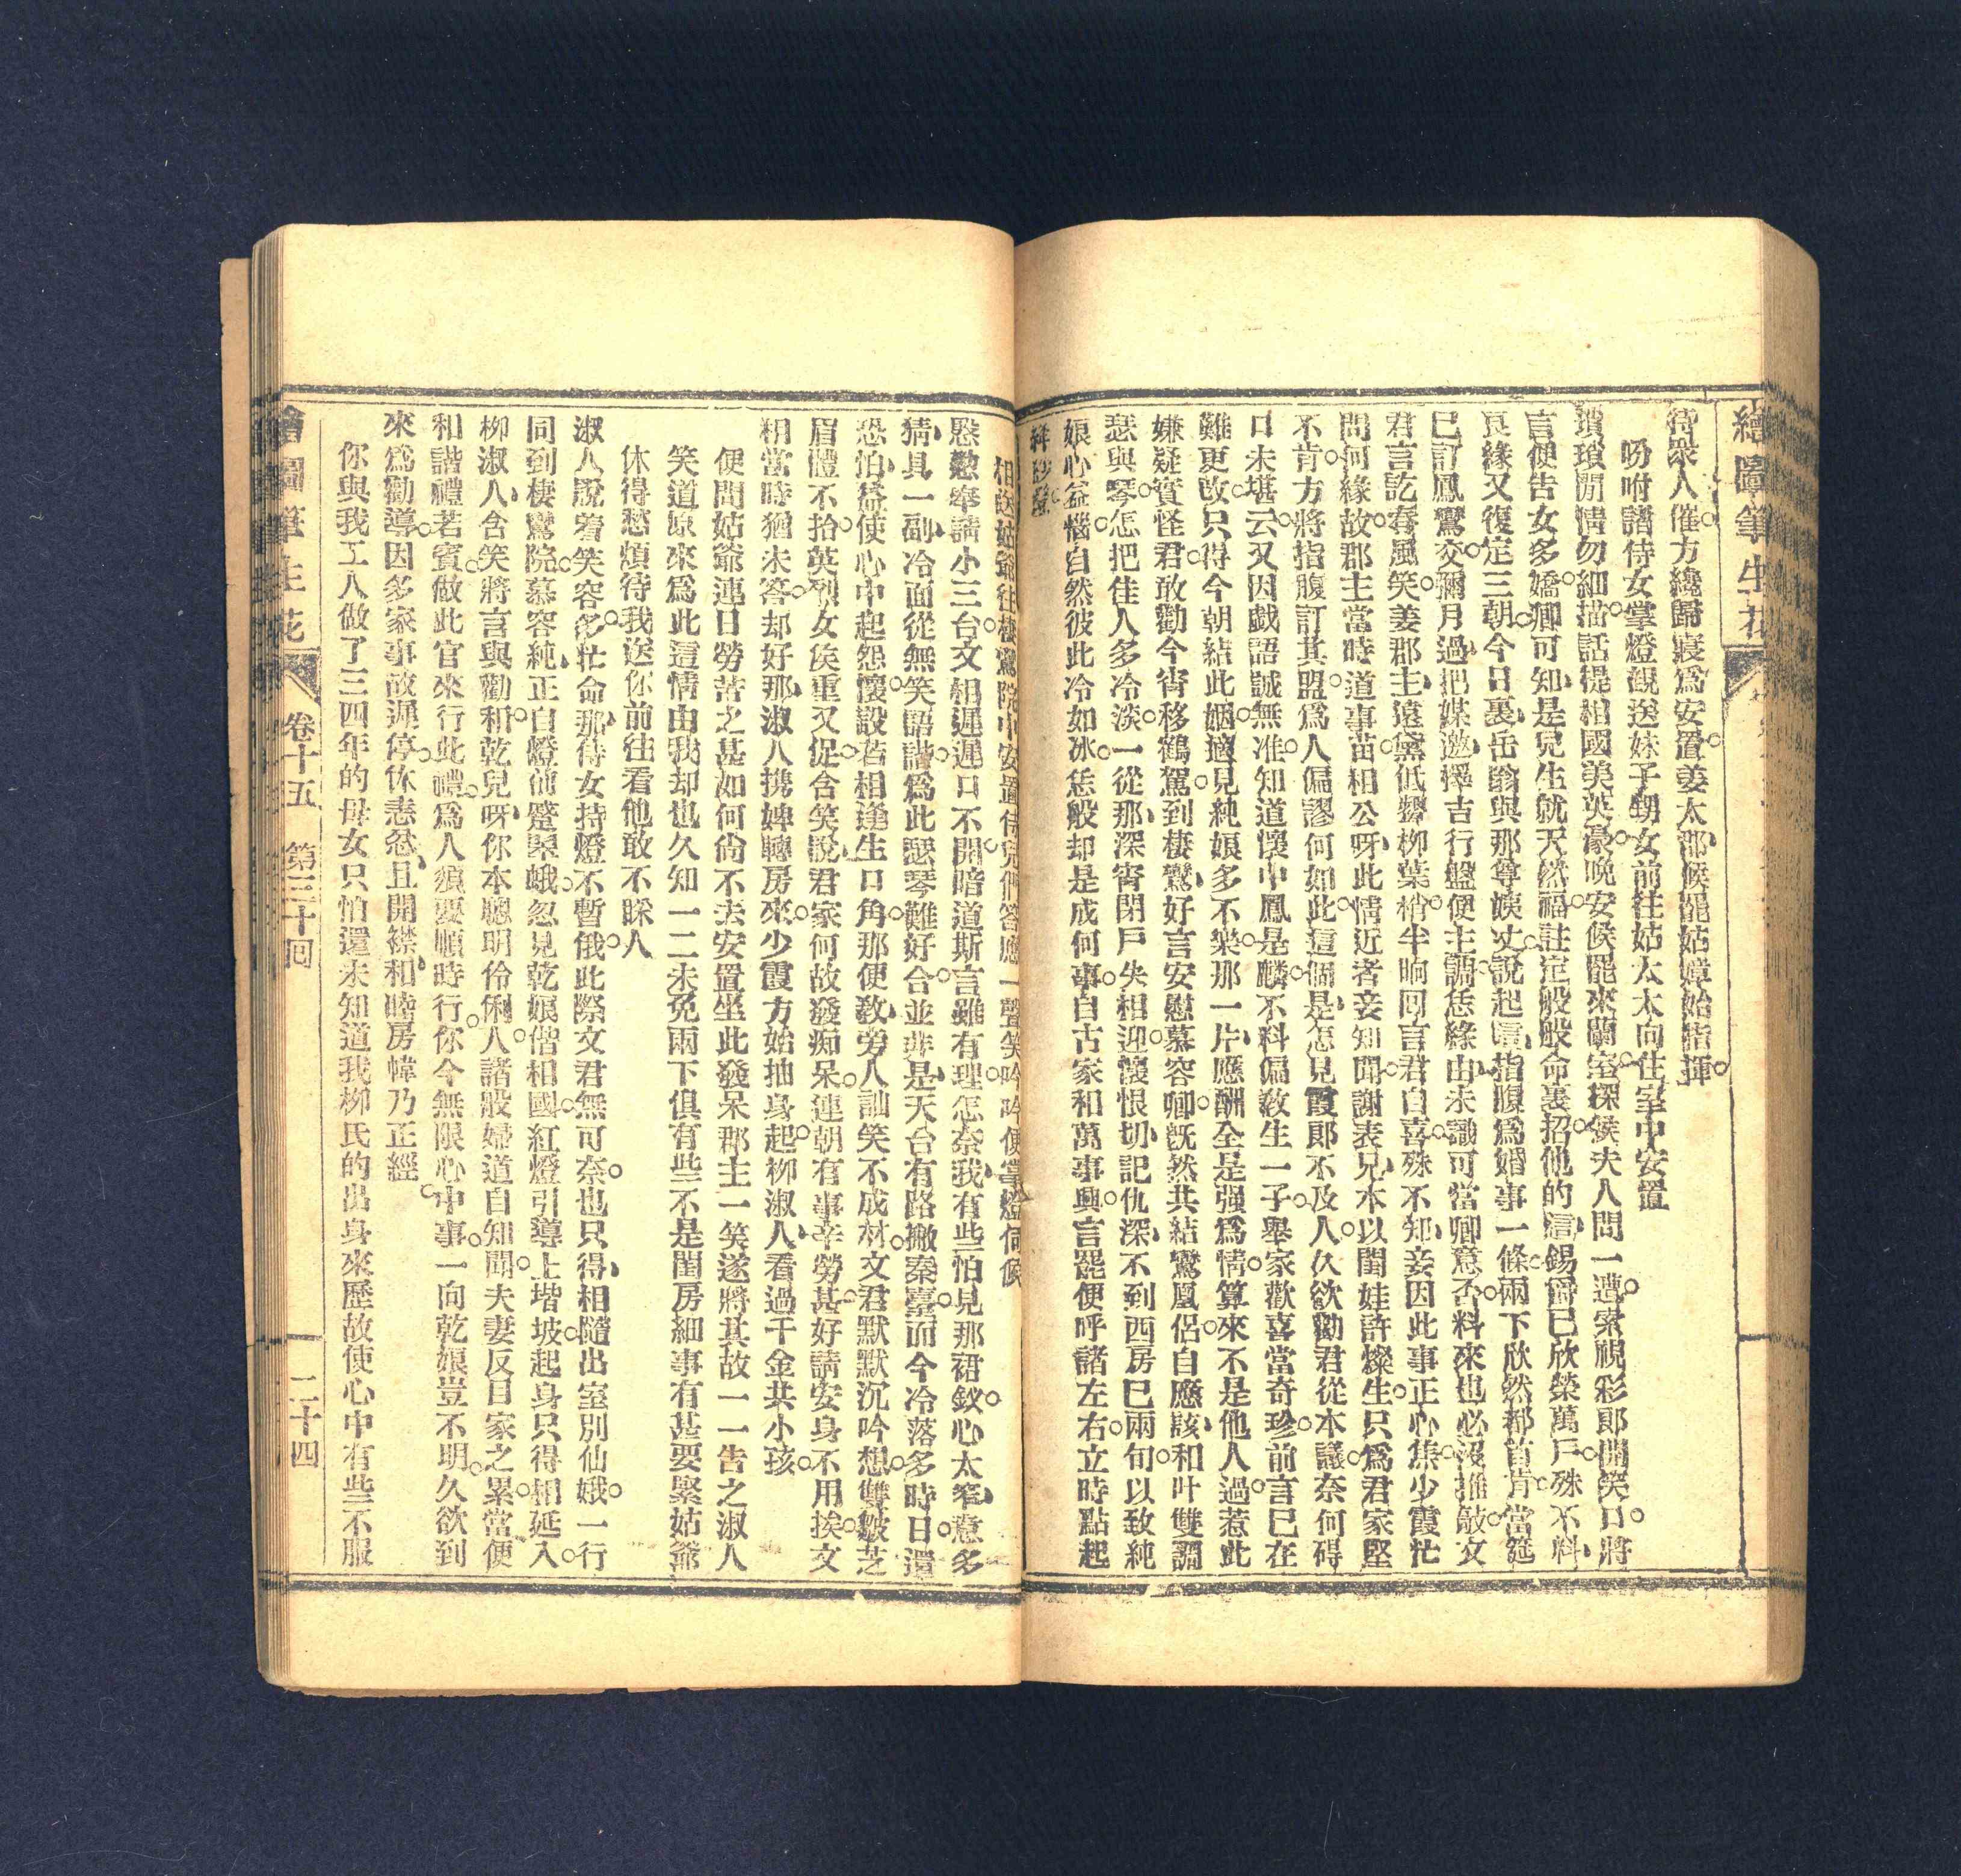 繪圖筆生花
待衆人催方纔歸寢爲安置姜太郡候罷姑嫜始指揮
吩咐諸侍女掌燈親送妹子甥女前往姑太太向住室中安置
瓊瑣閒情勿細描話提相國美英豪晚安候罷來蘭室探候夫人問一遭索視彩郎開笑口將
言便告女多嬌卿可知是兒生就天然福註定般般命裏招他的這錫爵已欣榮萬戶殊不料
良緣又復定三朝今日裏岳翁與那尊姨丈說起這指腹爲婚事一條兩下欣然都首肯當筵
已訂鳳鸞交彌月過把媒邀擇吉行盤便主調恁緣由未識可當卿意否料來也必沒推敲文
君言訖春風笑姜郡主遠黛低顰柳葉梢半晌回言君自喜殊不知妾因此事正心焦少霞忙
問何緣故郡主當時道事苗相公呀此情近者妾知聞謝表兄本以閨娃許燦生只爲君家堅
不肯方將指腹訂其盟爲人偏謬何如此這個是怎見霞郎不及人久欲勸君從本議奈何碍
口未堪云又因戯語誠無准知道懷中鳳是麟不料偏教生一子舉家歡喜當奇珍前言已在
難更改只得今朝結此姻適見純娘多不樂那一片應酬全是强爲情算來不是他人過惹此
嫌疑實怪君敢勸今宵移鶴駕到棲鸞好言安慰慕容卿旣然共結鸞凰侶自應該和叶雙調
瑟與琴怎把佳人多冷淡一從那深宵閉戶失相迎懷恨切記仇深不到西房已兩旬以致純
娘心益惱自然彼此冷如冰恁般却是成何事自古家和萬事興言罷便呼諸左右立時點起
絳紗燈
相送姑爺往棲鸞院中安置侍兒們答應一聲笑吟吟便掌燈伺候
慇懃奉請小三台文相遲遲口不開暗道斯言雖有理怎奈我有些怕見那裙釵心太窄意多
猜具一副冷面從無笑語諧爲此瑟琴難好合並非是天台有路撇秦臺而今冷落多時日還
恐怕益使心中起怨懷設若相逢生口角那便教旁人訕笑不成材文君默默沉吟想雙皺芝
眉體不抬英烈女俟重又促含笑說君家何故發痴呆連朝有事辛勞甚好請安身不用挨文
相當時猶未答却好那淑人携婢轉房來少霞方始抽身起柳淑人看過千金共小孩
便問姑爺連日勞苦之甚如何尙不去安置坐此發呆郡主一笑遂將其故一一告之淑人
笑道原來爲此這情由我却也久知一二未免兩下俱有些不是閨房細事有甚要緊姑爺
休得愁煩待我送你前往看他敢不睬人
淑人說着笑容多忙命那侍女持燈不暫俄此際文君無可奈也只得相隨出室別仙娥一行
同到棲鸞院慕容純正自燈前蹙翠蛾忽見乾娘偕相國紅燈引導上堦坡起身只得相延入
柳淑人含笑將言與勸和乾兒呀你本聰明伶俐人諸般婦道自知聞夫妻反目家之累當便
和諧禮若賓做此官來行此禮爲人須要順時行你今無限心中事一向乾娘豈不明久欲到
來爲勸導因多家事故遲停休恚忿且開襟和睦房幃乃正經
你與我工人做了三四年的母女只怕還未知道我柳氏的出身來歷故使心中有些不服
繪圖筆生花
卷十五 第三十回
二十四